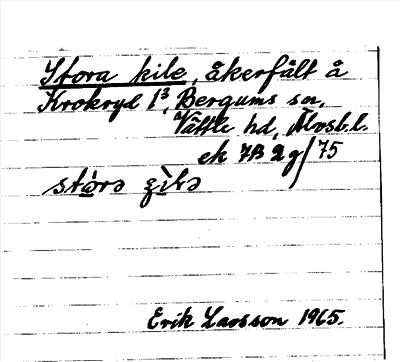 Stora kile, åkerfält å
Krokryd 1³, Bergums sn,
Vättle hd, Älvsb. l.
ek 7B 2 g/75
Erik Larsson 1965.